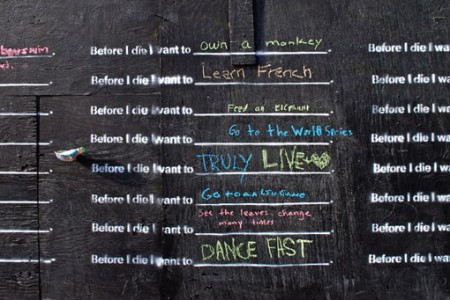 Before I die I want to own a monkey
Before I die I want to Learn French
Before I die I want to Feed an Elephant
Before I die I want to Go to the World Series
Before I die I want to TRULY LIVE
Before I die I want to Go to a
Before I die I want to See the leaves change
many times
Before I die I want to DANCE FAST
Before I die I wa
Before I die I wa
Before I die I wa
Before I die I wa
Before I die I wa
Before I die I wa
Before I die I wa
Before I die I wa